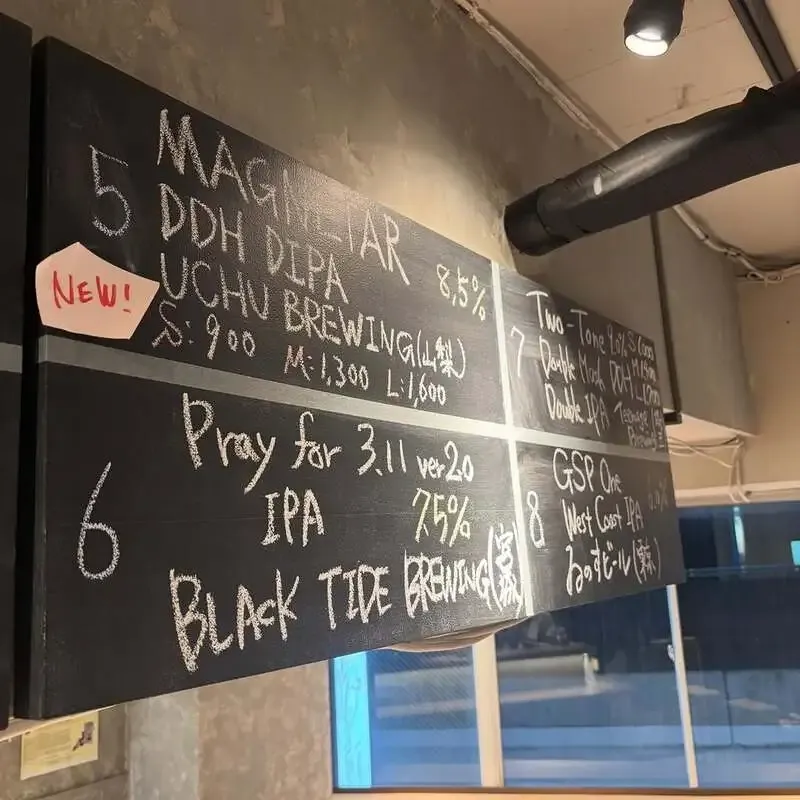 5
MAGNETAR
DDH DIPA 8,5%
UCHU BREWING(山梨)
S:900 M:1,300 L:1,600
NEW!
6
Pray for 3.11 ver2.0
IPA 7.5%
BLACK TIDE BREWING(宮城)
7
Two-Tone
Double Mash DDH
Double IPA Teenage
Brewing
8
GSP One
West Coast IPA
ゐのすビール(東京)